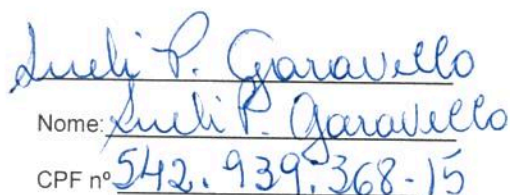 Sueli P. Garavello
Nome: Sueli P. Garavello
CPF nº 542.939.368-15